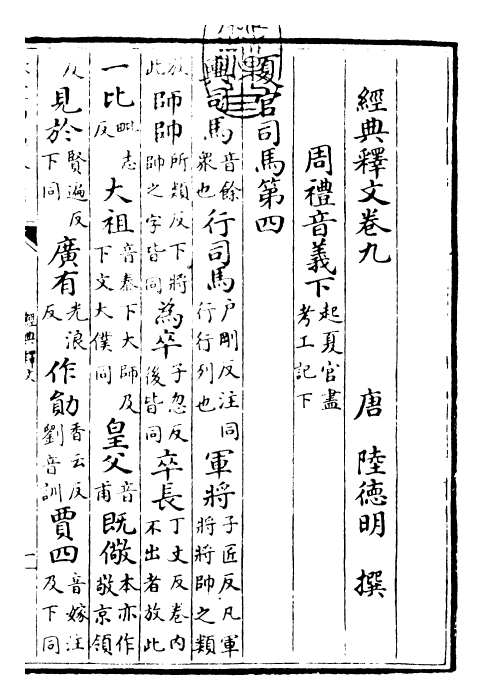 經典釋文卷九　唐　陸德明　撰
周禮音義下 起夏官盡考工記下
夏官司馬第四
輿司馬 音餘衆也 行司馬 戶剛反注同行行列也 軍將 子匠反凡軍將將帥之類
放此 師帥 所類反下將帥之字皆同 為卒 子忽反後皆同 卒長 丁丈反卷内不出者放此
一比 毗志反 大祖 音泰下大師及下文大僕同 皇父 音甫 既儆 本亦作敬京領
反 見於 賢遍反下同 廣有 光浪反 作勛 香云反劉音訓 賈四 音嫁注及下同
經典釋文